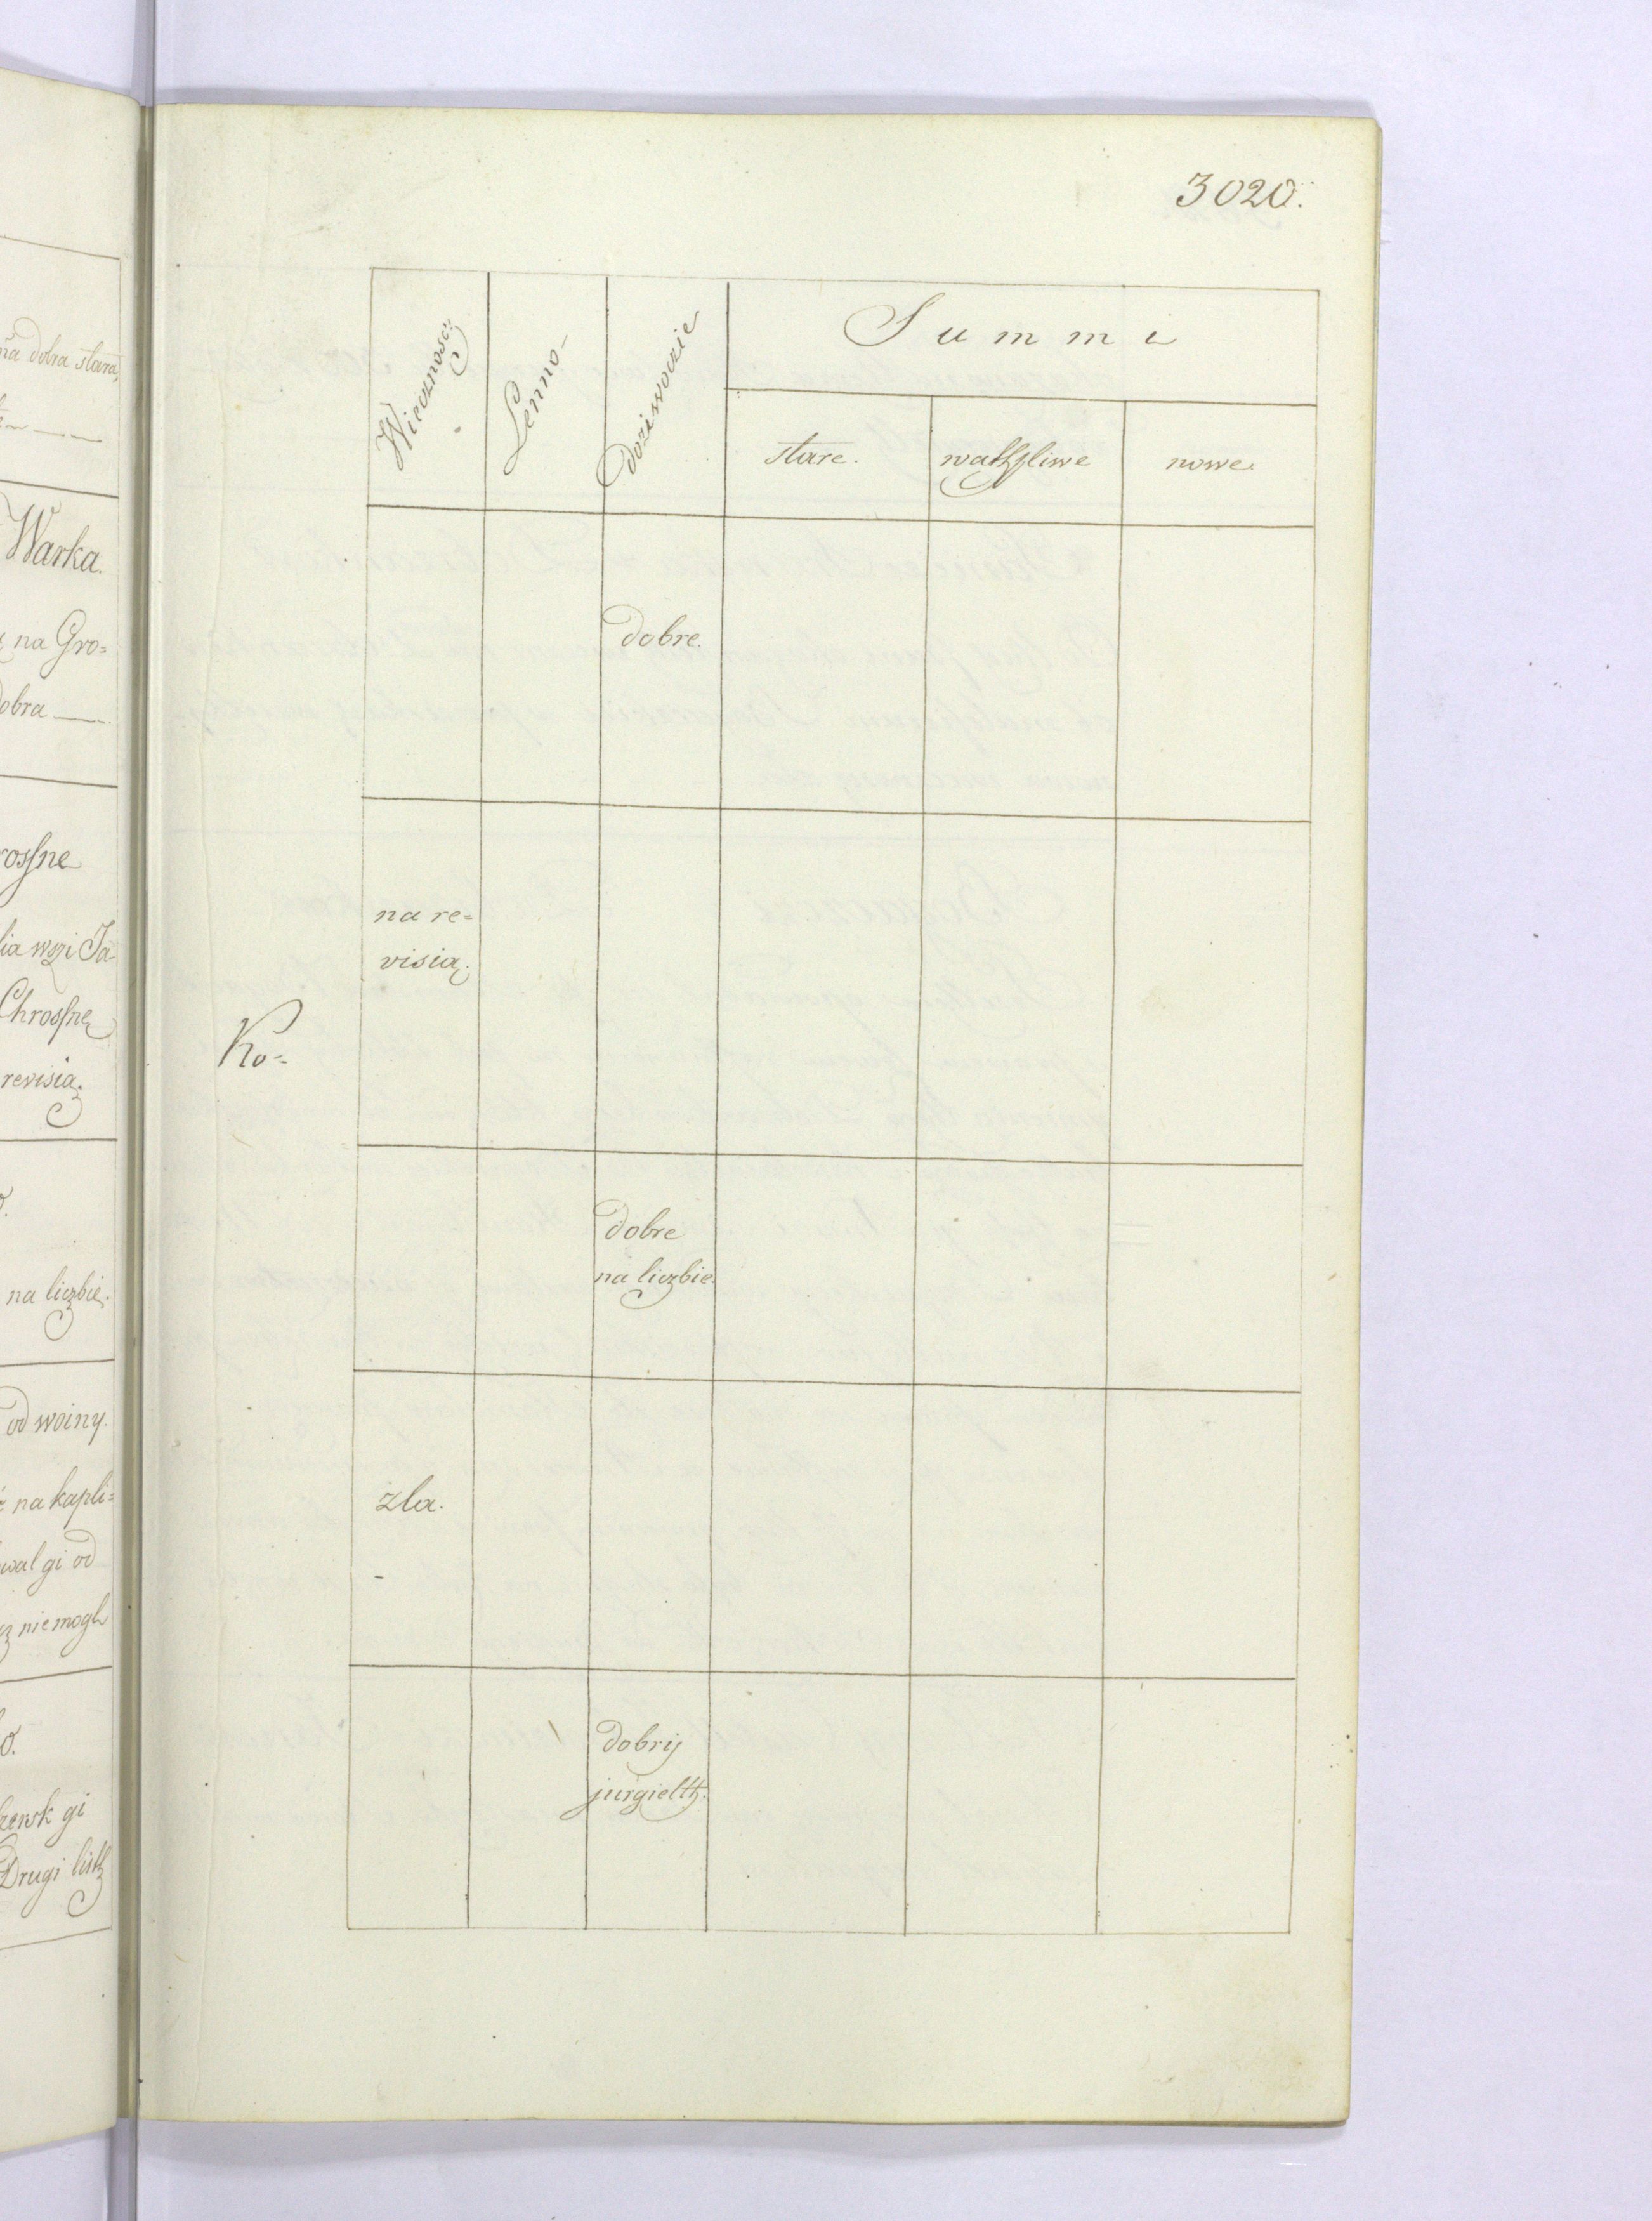 na dobra stara,
Warka.
na Gro=
dobra
rossne
lia wszi Ja=
Chrossne
revisią.
na liczbie.
od woiny.
na kapli=
wal gi od
niemogł
gi
Drugi listh
3020.
Wiecznoscy
Lenno
dożiwocie
Summi
stare. wathpliwe nowe.
dobre.
na re=
visią.
Ko=
dobre
na liczbie.
zla.
dobrij
jurgielth.